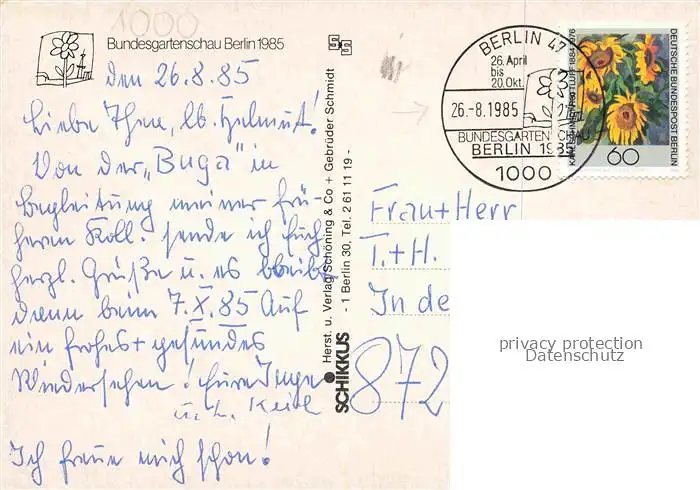 1000
Bundesgartenschau Berlin 1985
den 26.8.85
Liebe Thea, lb. Helmut!
Von der „Buga" in
Begleitung meiner frü-
hern Koll. sende ich Euch
herzl. Grüße u. es bleibt
dann beim 7.X.85 Auf
ein frohes + gesundes
Wiedersehen! Eure Inge
u. L. Keil
Ich freue mich schon!
SCHIKKUS
Herst. u. Verlag Schöning & Co + Gebrüder Schmidt
- 1 Berlin 30, Tel. 2 61 11 19 -
BERLIN 47
26. April
bis
20. Okt.
26.-8.1985
BUNDESGARTENSCHAU
BERLIN 1985
1000
DEUTSCHE BUNDESPOST BERLIN
KARL SCHMIDT-ROTTLUFF 1884-1976
60
Frau + Herr
T. + H.
In de
872
privacy protection
Datenschutz